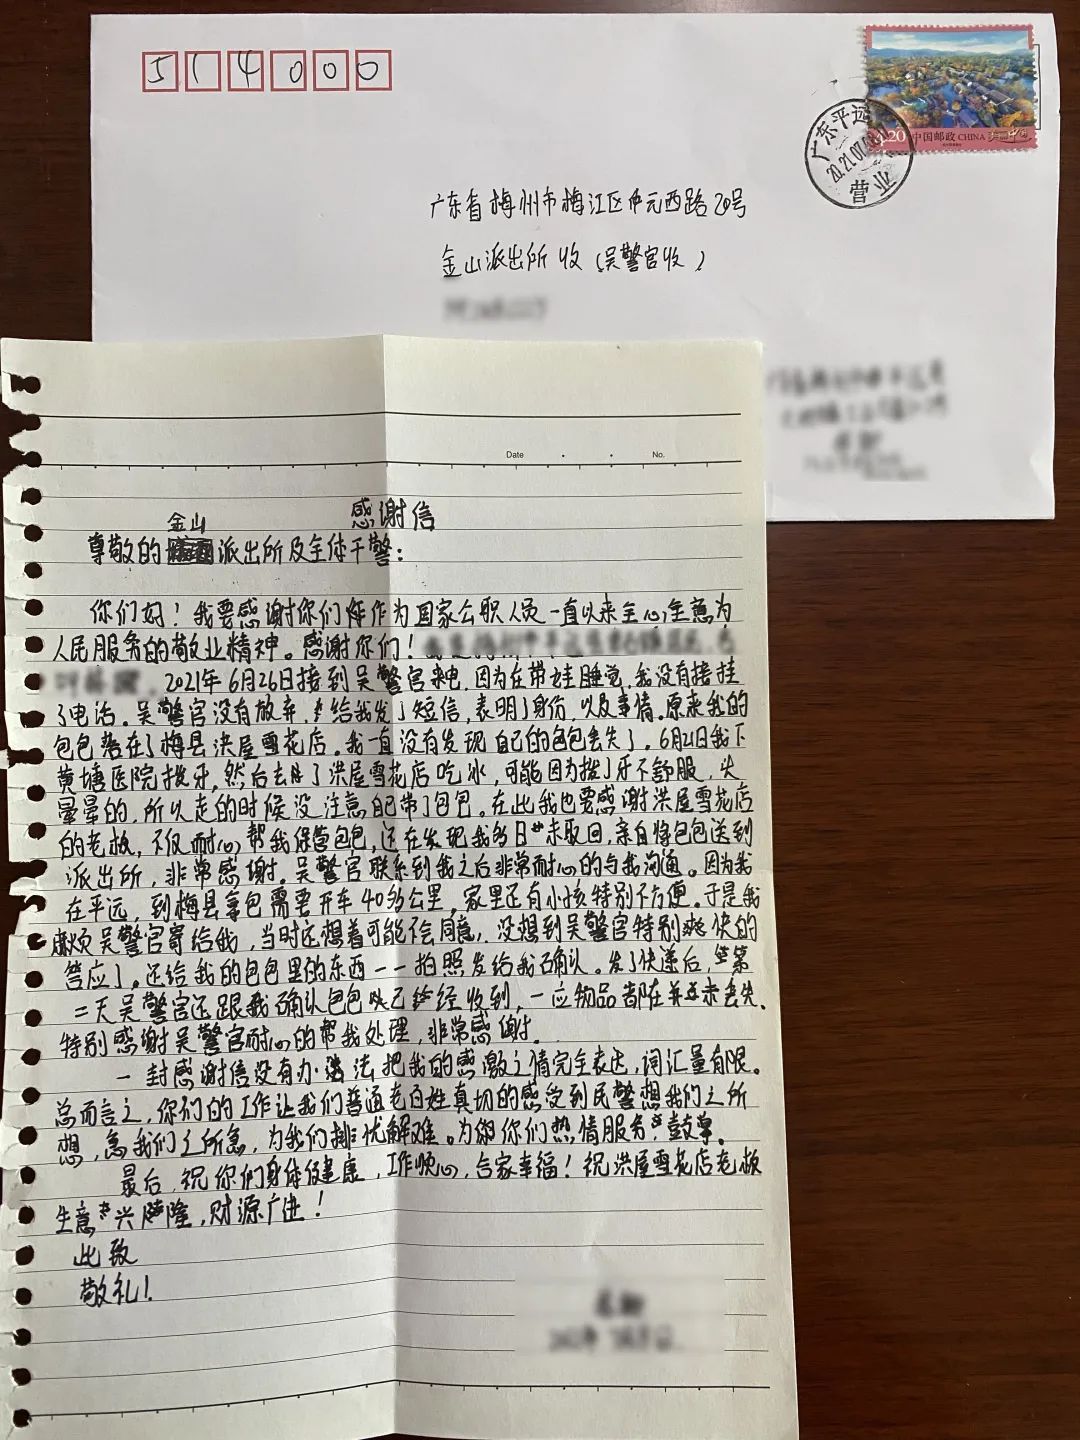 514000
广东平远
2021.07.
营业
中国邮政 CHINA 美丽中国
广东省梅州市梅江区中元西路20号
金山派出所收(吴警官收)
Date . . No.
感谢信
金山
尊敬的派出所及全体干警:
你们好!我要感谢你们作为国家公职人员一直以来全心全意为
人民服务的敬业精神。感谢你们!
2021年6月26日接到吴警官来电,因为在带娃睡觉,我没有接挂
了电话。吴警官没有放弃,给我发了短信,表明了身份,以及事情。原来我的
包包落在了梅县洪屋雪花店。我一直没有发现自己的包包丢失了。6月21日我下
黄塘医院拨牙,然后去了洪屋雪花店吃冰,可能因为拨了牙不舒服,头
晕晕的,所以走的时候没注意自己带了包包。在此我也要感谢洪屋雪花店
的老板,不仅耐心帮我保管包包,还在发现我多日未取回,亲自将包包送到
派出所,非常感谢。吴警官联系到我之后非常耐心的与我沟通。因为我
在平远,到梅县拿包需要开车40多公里,家里还有小孩特别不方便。于是我
麻烦吴警官寄给我,当时还想着可能不会同意,没想到吴警官特别爽快的
答应了。还给我的包包里的东西一一拍照发给我确认。发了快递后,第
二天吴警官还跟我确认包包已经收到,一应物品都在并未丢失。
特别感谢吴警官耐心的帮我处理,非常感谢。
一封感谢信没有办法把我的感激之情完全表达,词汇量有限。
总而言之,你们的工作让我们普通老百姓真切的感受到民警想我们之所
想,急我们之所急,为我们排忧解难。为你们热情服务鼓掌。
最后,祝你们身体健康,工作顺心,合家幸福!祝洪屋雪花店老板
生意兴隆,财源广进!
此致
敬礼!